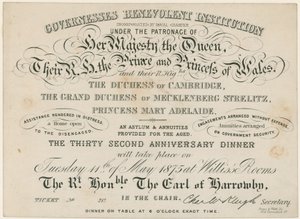 GOVERNESSES BENEVOLENT INSTITUTION
INCORPORATED BY ROYAL CHARTER
UNDER THE PATRONAGE OF
Her Majesty the Queen,
Their R. H. the Prince and Princess of Wales,
and their R. Hig
THE DUCHESS OF CAMBRIDGE,
THE GRAND DUCHESS OF MECKLENBERG STRELITZ,
PRINCESS MARY ADELAIDE.
ASSISTANCE RENDERED IN DISTRESS
a Home open
TO THE DISENGAGED.
AN ASYLUM & ANNUITIES
PROVIDED FOR THE AGED.
ENGAGEMENTS ARRANGED WITHOUT EXPENSE.
Annuities arranged
ON GOVERNMENT SECURITY.
THE THIRTY SECOND ANNIVERSARY DINNER
will take place on
Tuesday 11th of May 1875 at Willis's Rooms
The Rt. Honble The Earl of Harrowby,
IN THE CHAIR.
TICKET
Secretary.
DINNER ON TABLE AT 6 O'CLOCK EXACT TIME.